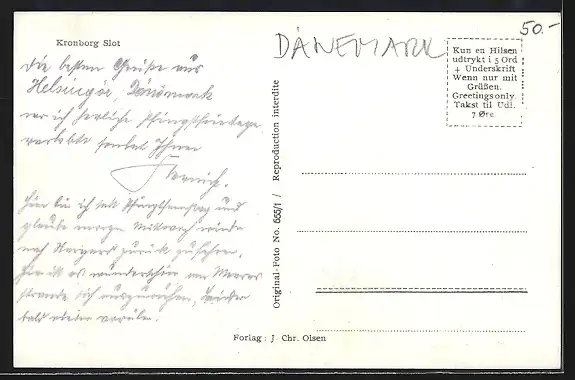 50.-
Kronborg Slot
DÄNEMARK
Kun en Hilsen
udtrykt i 5 Ord
+ Underskrift
Wenn nur mit
Grüßen.
Greetings only.
Takst til Udl.
7 Øre
Die besten Grüße aus
Helsingör, Dänemark
wo ich herrliche Pfingstfeiertage
verlebte sendet Ihnen
Hier bin ich seit Pfingstsamstag und
glaube morgen Mittwoch wieder
nach zurück zu fahren.
Hier ist es wunderschön am Meeres
strande sich auszuruhen, leider
bald wieder vorüber.
Original-Foto No. 655/1 / Reproduction interdite
Forlag: J. Chr. Olsen